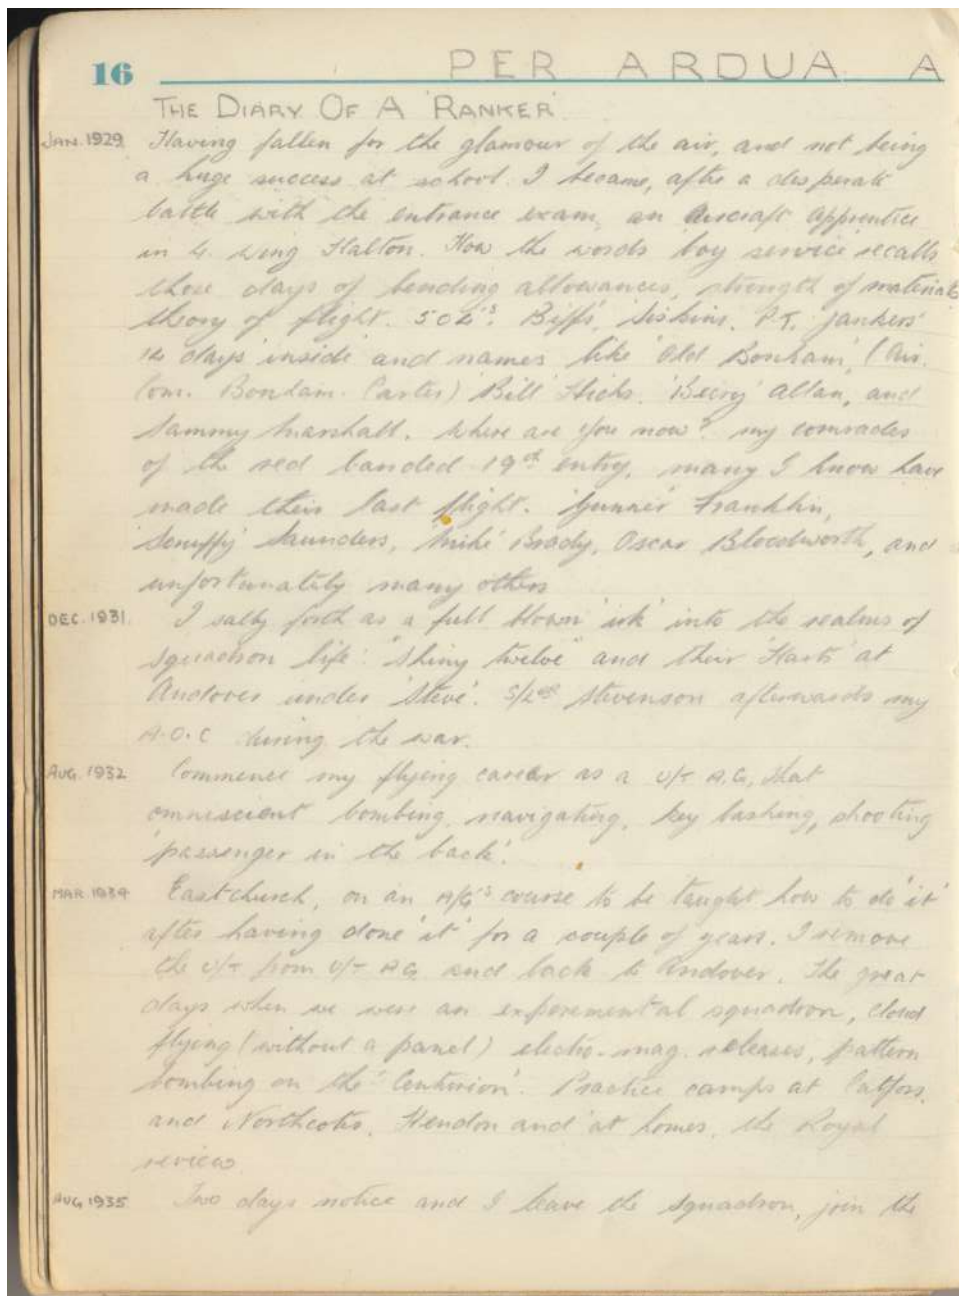 16
PER ARDUA A
THE DIARY OF A 'RANKER'
JAN. 1929 Having fallen for the glamour of the air, and not being
a huge success at school. I became, after a desperate
battle with the entrance exam, an Aircraft Apprentice
in 4. Wing Halton. How the words 'boy service' recalls
those days of bending allowances, strength of materials
theory of flight. 504's. Biffs, Siskins. P.T. 'jankers'
14 days 'inside' and names like 'Old Bonham', (Air.
Com. Bonham. Carter) 'Bill' Hicks. 'Beery' Allan, and
Sammy Marshall. Where are you now? my comrades
of the red banded 19th entry, many I know have
made their last flight. 'Gunner' Franklin,
'Scruffy' Saunders, 'Mike' Brady, Oscar Bloodworth, and
unfortunately many others
DEC. 1931. I sally forth as a full blown 'irk' into the realms of
squadron life. "Shiny twelve" and their 'Harts' at
Andover under 'Steve'. S/Ldr Stevenson afterwards my
A.O.C during the war.
AUG. 1932 Commence my flying career as a U/T A.G, that
omniscient bombing, navigating, key bashing, shooting
'passenger in the back'.
MAR 1934 Eastchurch, on an A/G's course to be taught how to do 'it'
after having done 'it' for a couple of years. I remove
the U/T from U/T A.G. and back to Andover. The great
days when we were an experemental squadron, cloud
flying (without a panel) electro. mag. releases, pattern
bombing on the 'Centurion'. Practice camps at Catfoss,
and Northcotes, Hendon and 'at homes', the Royal
review.
AUG 1935 Two days notice and I leave the squadron, join the